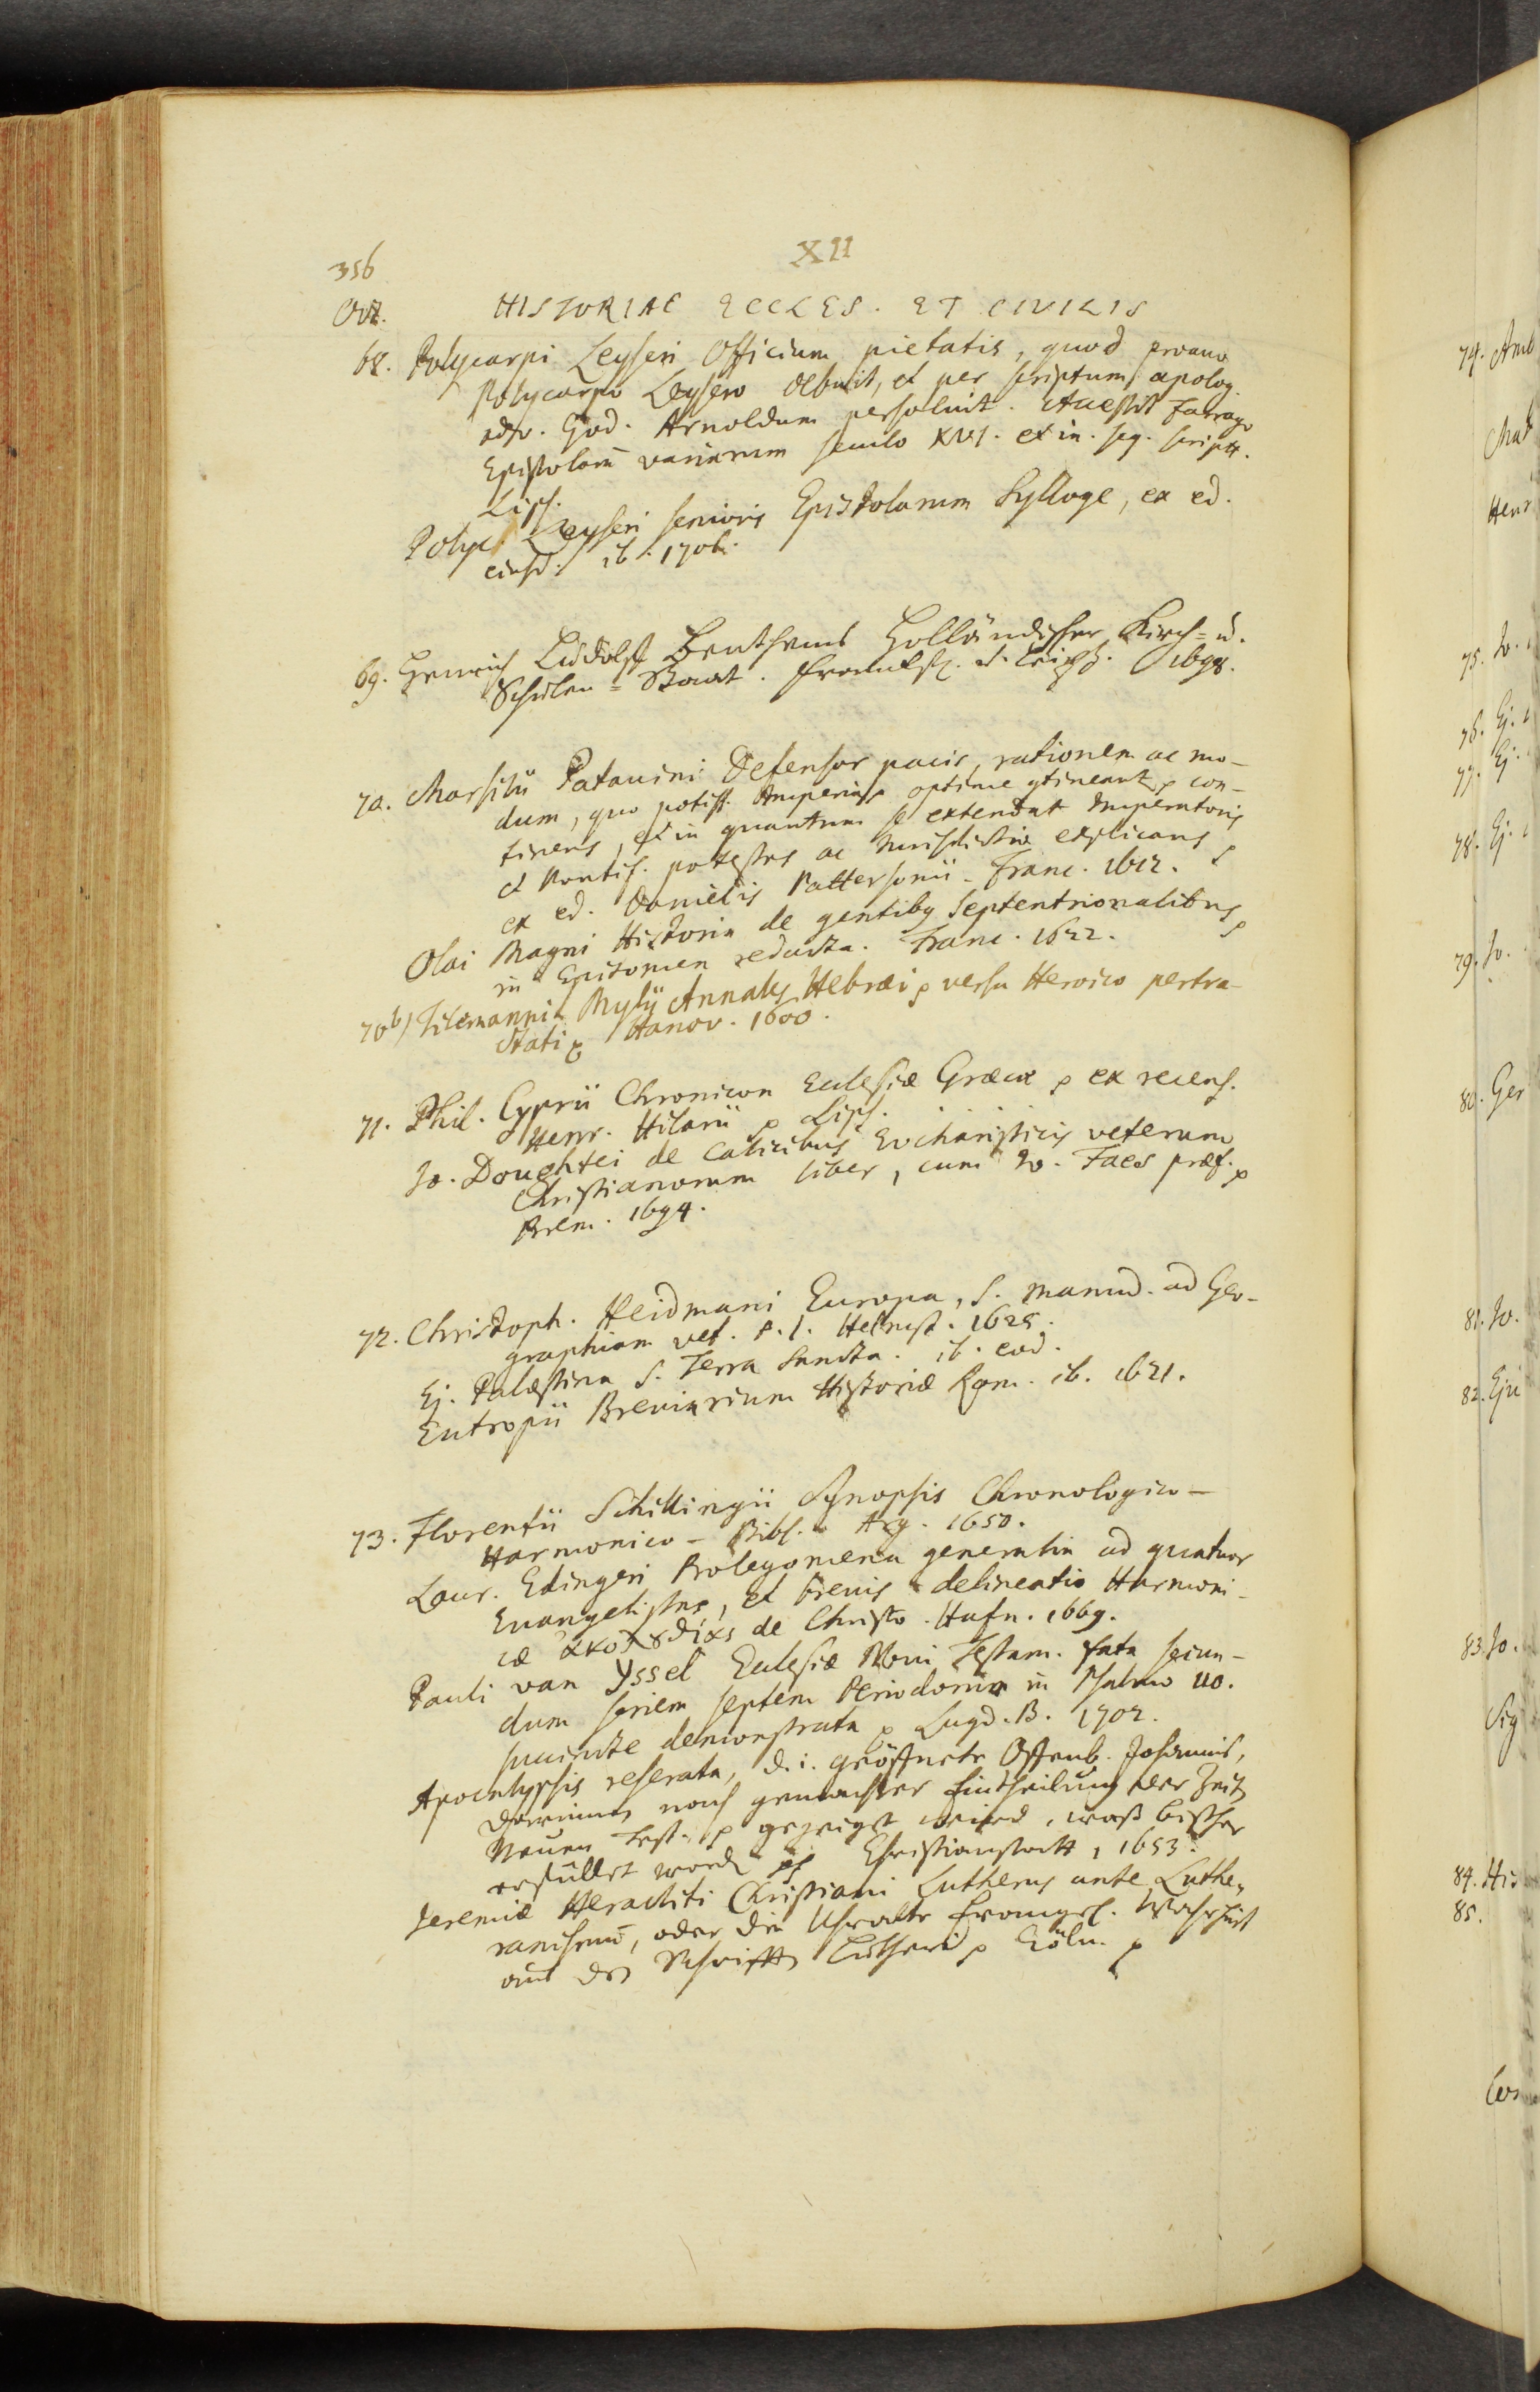 XII
356
Oct. HISTORIAE ECCLES. ET CIVILIS
68. Polycarpi Leyseri Officium pietatis, quod proavo
Polycarpo Leysero debuit, et per scriptum apolog.
adv. God. Arnoldum persoluit. Accessit Farrago
Epistolarū variarum seculo XVI. et in. seq. scriptt.
Lips.
Polyc. Leyseri senioris Epistolarum Sylloge, ex ed.
eiusd. ib. 1706.
69. Henrich Ludolff Benthems Holländischer Kirch= u.
Schulen=Staat. Franckf. u. Leipz. 1698.
70. Marsilii Patauini Defensor pacis, rationem ac mo-
dum, quo potiss. Imperia optime ꝯtineant con-
tinens, et in quantum se extendat Imperatoris
et Pontif. potestas ac Jurisdictio explicans
ex ed. Danielis Pattersonii. Franc. 1612.
Olai Magni Historia de gentibꝯ Septentrionalibus
in Epitomen redacta. Franc. 1622.
70b) Tilemanni Mylii Annales Hebræi versu Heroico pertra-
ctati Hanov. 1600.
71. Phil. Cyprii Chronicon Ecclesiæ Græcæ ex recens.
Henr. Hilarii Lips.
Jo. Doughtei de Calicibus Eucharisticis veterum
Christianorum liber, cum Jo. Faes præf.
Brem. 1694.
72. Christoph. Heidmani Europa, s. manud. ad Geo-
graphiam vet. P. I. Helmst. 1625.
Ej. Palæstina s. Terra Sancta. ib. eod.
Eutropii Breviarium Historiæ Rom. ib. 1621.
73. Florentii Schillingii Synopsis Chronologico-
Harmonico-Bibl. Arg. 1650.
Laur. Edingeri Prolegomena generalia ad quatuor
Euangelistas, et brevis delineatio Harmoni-
cæ ἀκολȣθίας de Christo. Hafn. 1669.
Pauli van Yssel Ecclesiæ Novi Testam. fata secun-
dum seriem septem Periodorum in Psalmo 110.
succincte demonstrata Lugd. B. 1702.
Apocalypsis reserata, d. i. geöffnete Offenb. Johannis,
darinnen nach gemachter Eintheilung der Zeit
Neuen Test. gezeiget wird, waß bißher
erfüllet word. Christianstatt, 1653.
Jeremiæ Heracliti Christiani Lutherus ante Luthe-
ranismū, oder die Uhralte Evangel. Wahrheit
aus der Schrifft Lutheri Cöln.
74.
75. Jo.
76. Ej.
77. Ej.
78. Ej.
79. Jo.
80. Ger
81. Jo.
82. Eju
83. Jo.
Sig
84. His
85.